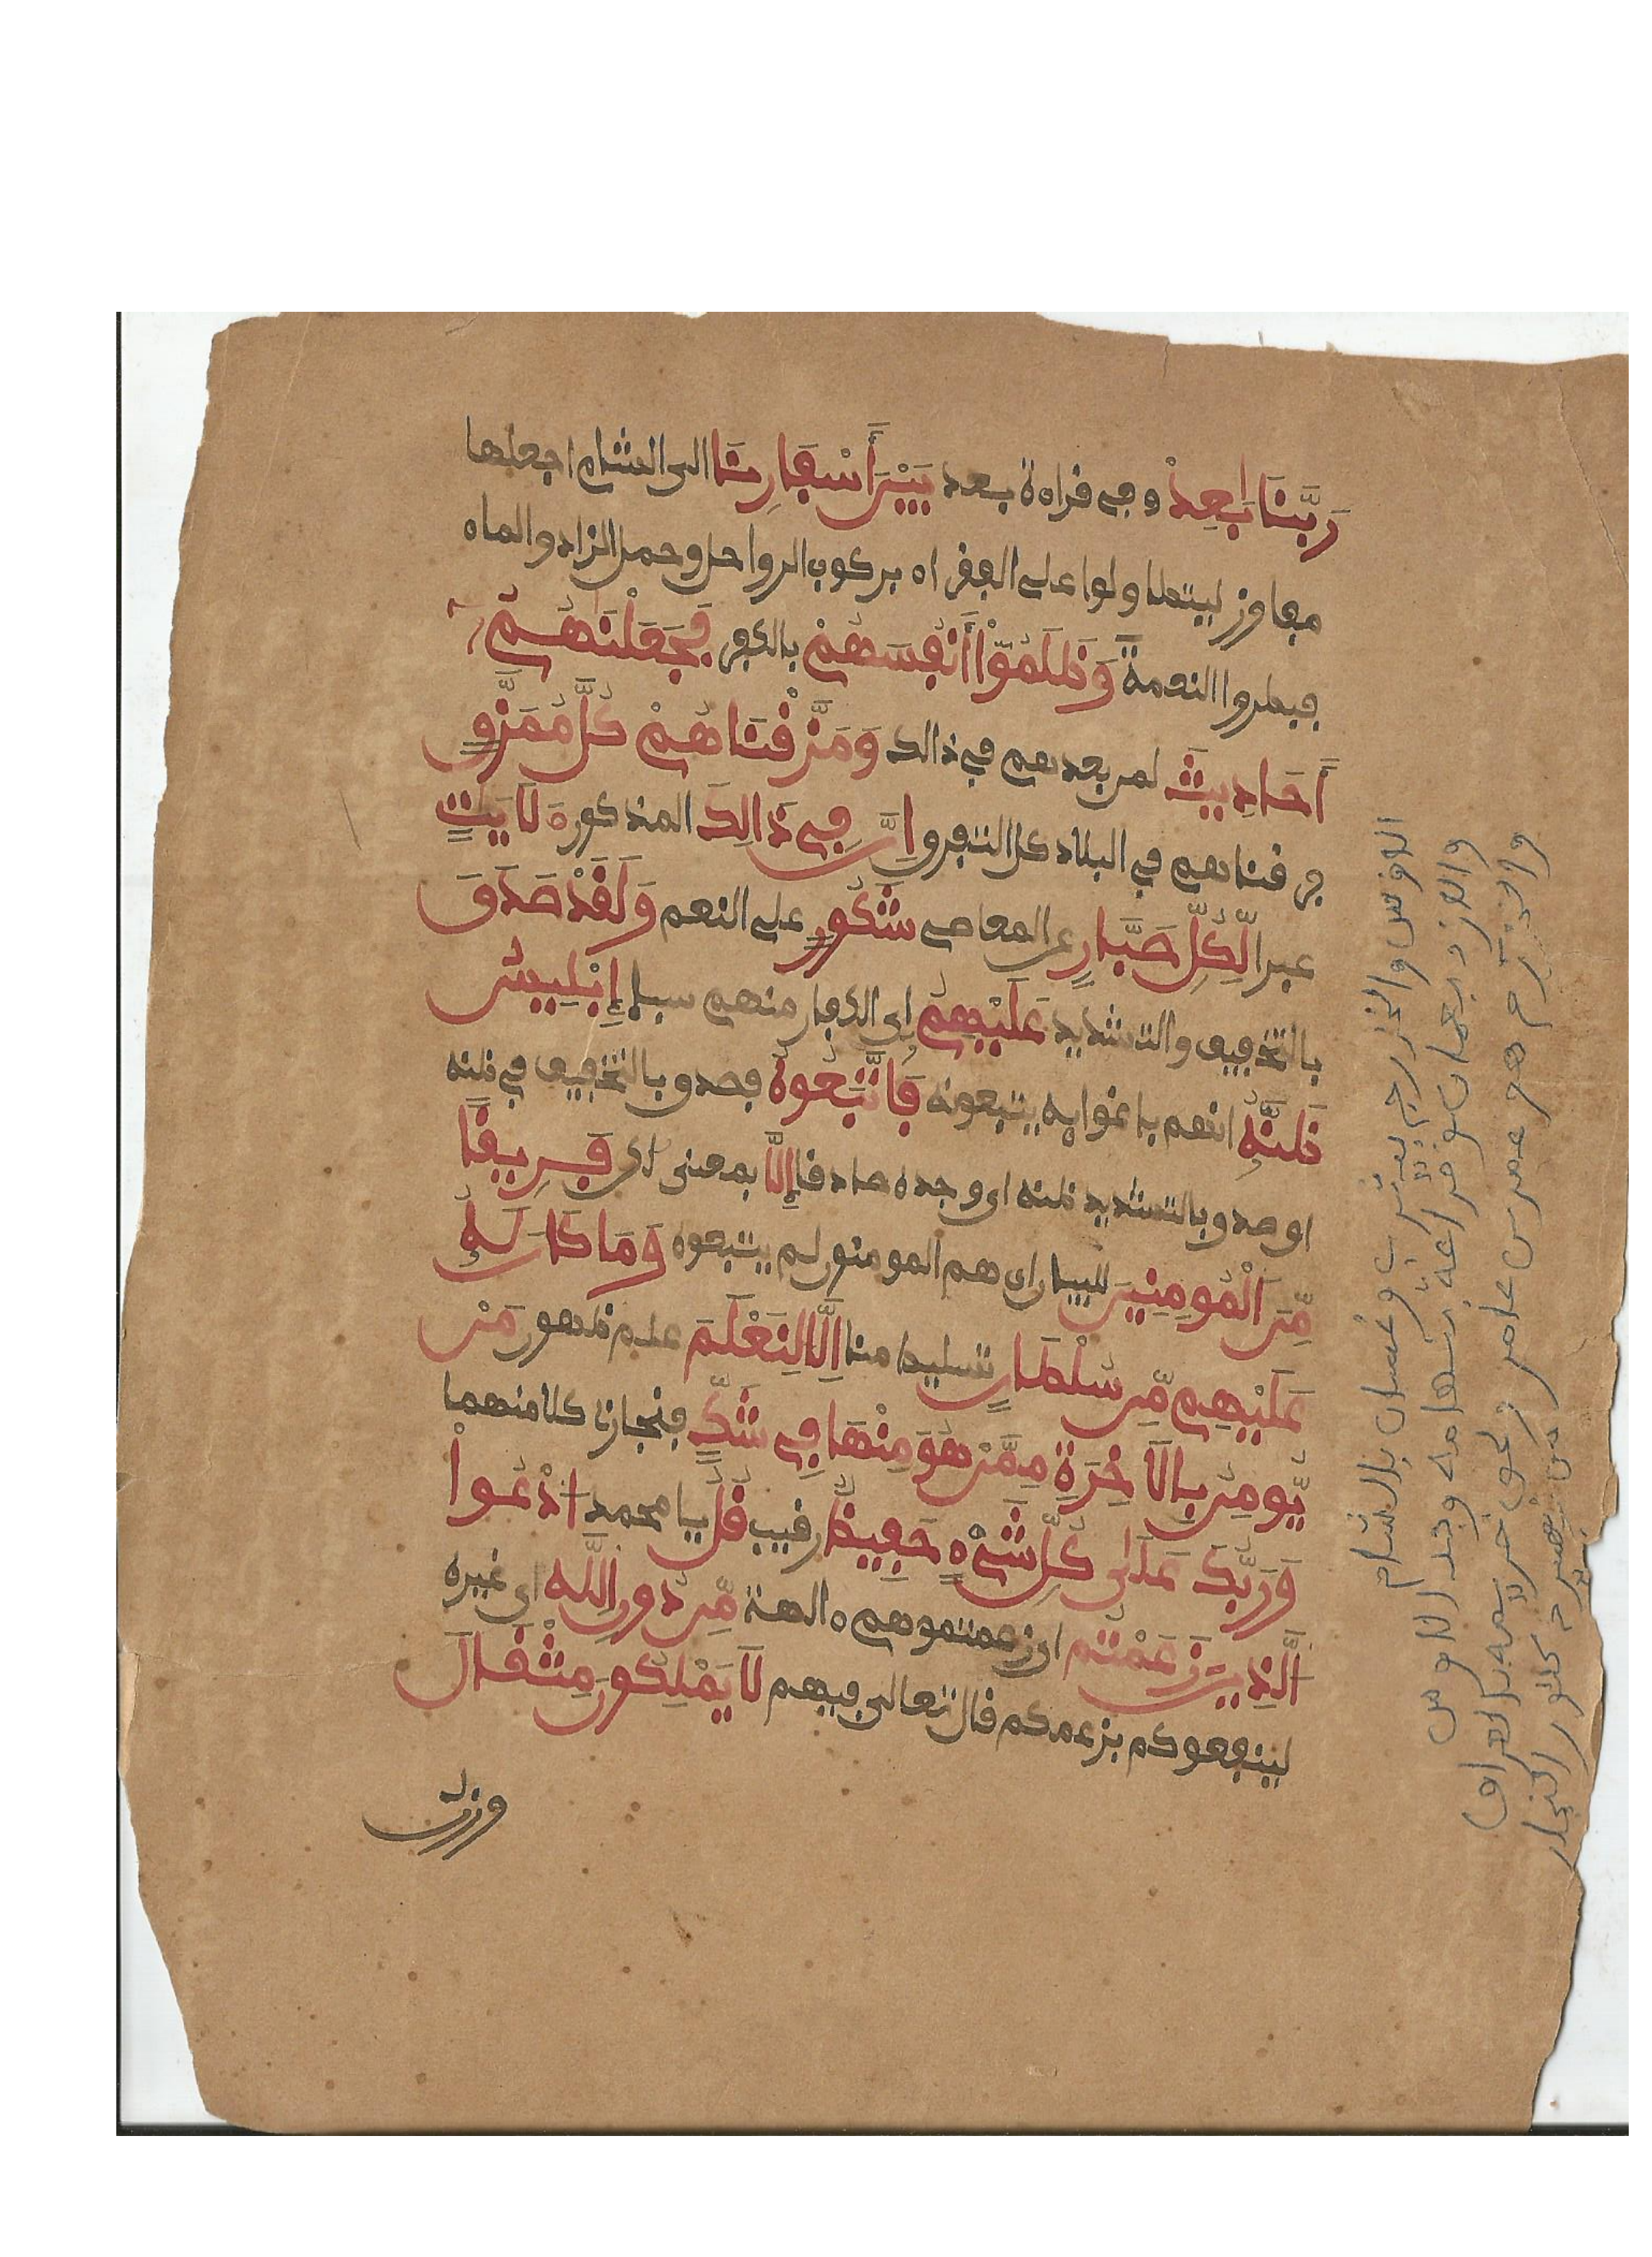 رَبَّنَا بَٰعِدْ وفي قراءة بعد بَيْنَ أَسْفَارِنَا الى الشام اجعلها
مفاوز ليتطاولوا على الفقراء بركوب الرواحل وحمل الزاد والماء
فبطروا النعمة وَظَلَمُوٓاْ أَنفُسَهُمْ بالكفر فَجَعَلْنَٰهُمُۥٓ
أَحَادِيثَ لمن بعدهم في ذالك وَمَزَّقْنَاهُمْ كُلَّ مُمَزَّقٍ
فرقناهم في البلاد كل التفرق اِنَّ فِي ذَالِكَ المذكورة لَأَيَٰتٍ
عبرا لِّكُلِّ صَبَّارٍ عن المعاصي شَكُورٍ على النعم وَلَقَدْ صَدَقَ
بالتخفيف والتشديد عَلَيْهِمُۥٓ اى الكفار منهم سبإ إِبْلِيسُ
ظَنَّهُۥ انهم باغوايه يتبعونه فَاتَّبَعُوهُ فصدق بالتخفيف في ظنه
او صدق بالتشديد ظنه اى وجده صادقا إِلَّا بمعنى لكن فَرِيقًا
مِّنَ اَلْمُومِنِينَ للبيان اى هم المومنون لم يتبعوه وَمَا كَانَ لَهُۥ
عَلَيْهِم مِّن سُلْطَانٍ تسليط منا اِلَّا لِنَعْلَمَ علم ظهور مَنْ
يُّومِنُ بِالَاخِرَةِ مِمَّنْ هُوَ مِنْهَا فِي شَكٍّ فنجازى كلا منهما
وَرَبُّكَ عَلَىٰ كُلِّ شَيْءٍ حَفِيظٌ رقيب قُلُ يا محمد اُدْعُواْ
اَلذِينَ زَعَمْتُم اى زعمتموهم ءالهة مِّن دُونِ اِللَّهِ اى غيره
لينفعوكم بزعمكم قال تعالى فيهم لَا يَمْلِكُونَ مِثْقَالَ
وزن
الاوس والخزرج بيثرب وغسان بالشام
والازد بعمان وخزاعة بتهامة وجد الاوس